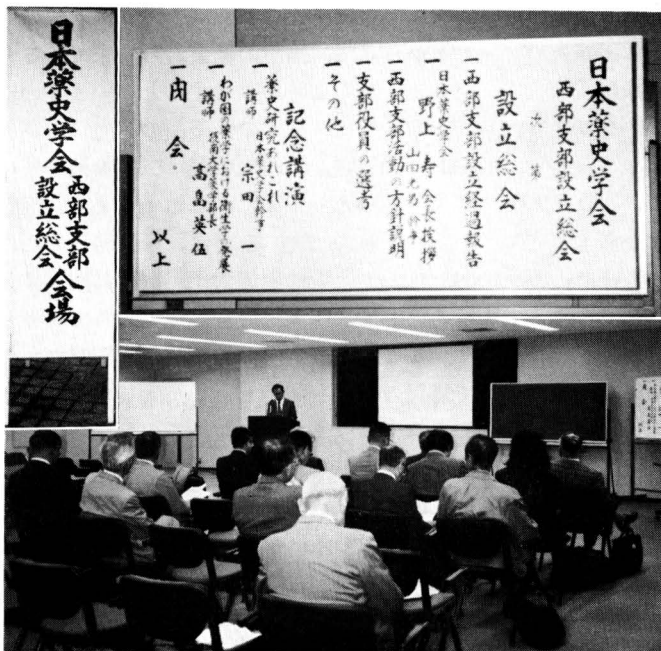 日本薬史学会
西部支部
設立総会
会場
日本薬史学会
西部支部設立総会
次第
設立総会
一西部支部設立経過報告
日本薬史学会
一野上寿会長挨拶
山田光男幹事
一西部支部活動の方針説明
一支部役員の選考
一その他
記念講演
一薬史研究あれこれ
講師 日本薬史学会幹事 宗田一
一わが国の薬学における衛生学の発展
講師 大学薬学部長 高畠英伍
一閉会
以上